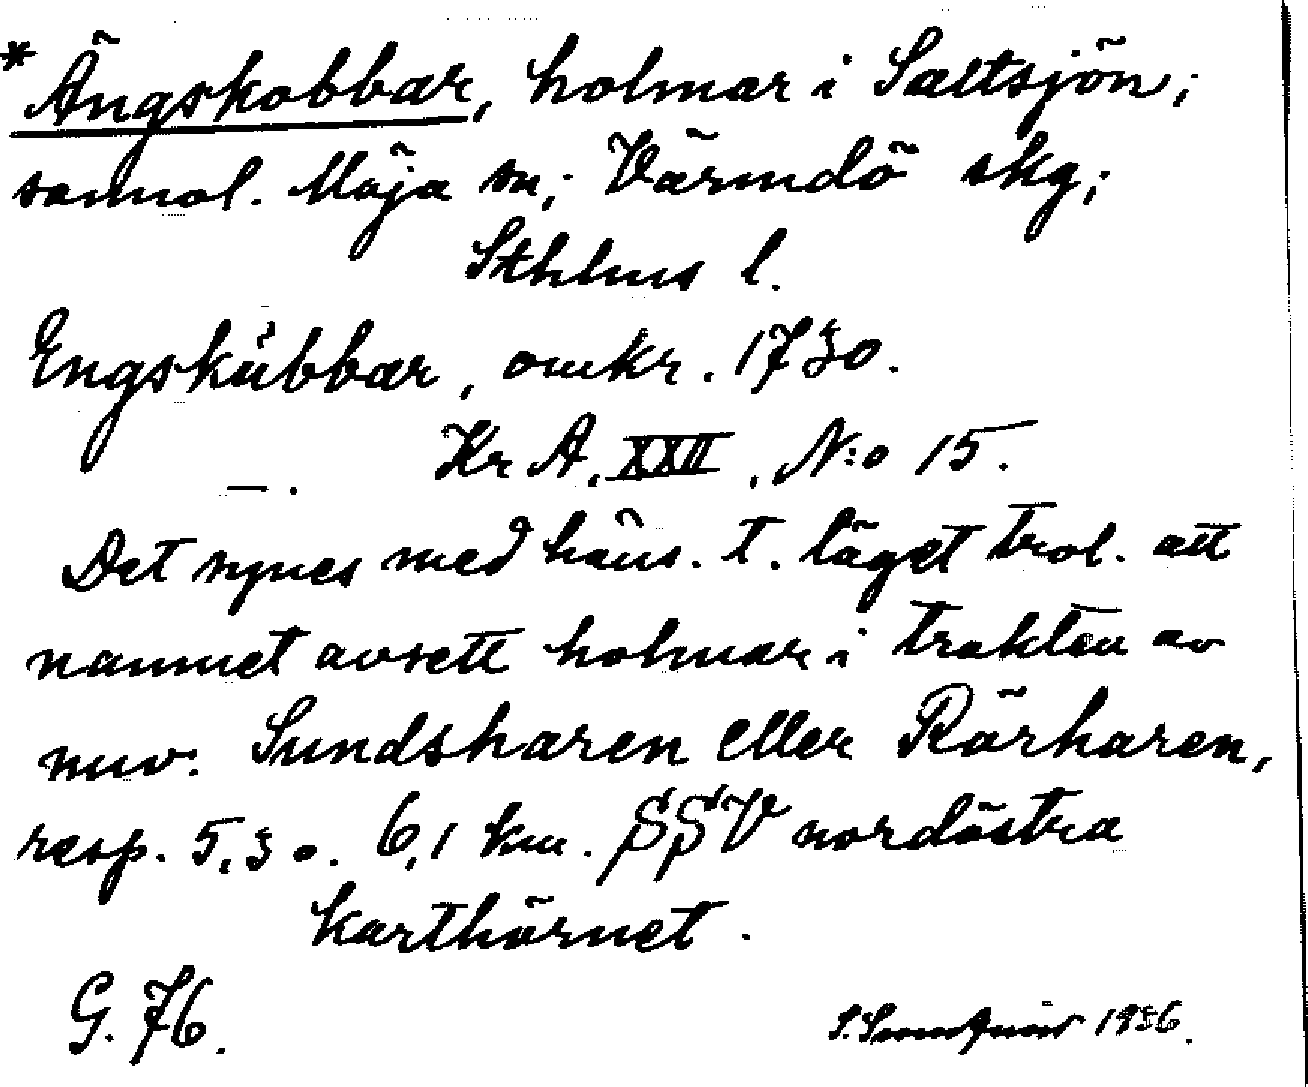 * Ängskobbar, holmar i Saltsjön;
sannol. Möja sn; Värmdö skg;
Sthlms l.
Engskůbbar, omkr. 1730.
Kr A, XXII, N:o 15.
—.
Det synes med häns. t. läget trol. att
namnet avsett holmar i trakten av
nuv. Sundsharen eller Rörharen,
resp. 5,3 o. 6,1 km. SSV nordöstra
karthörnet.
G. 76.
1936.